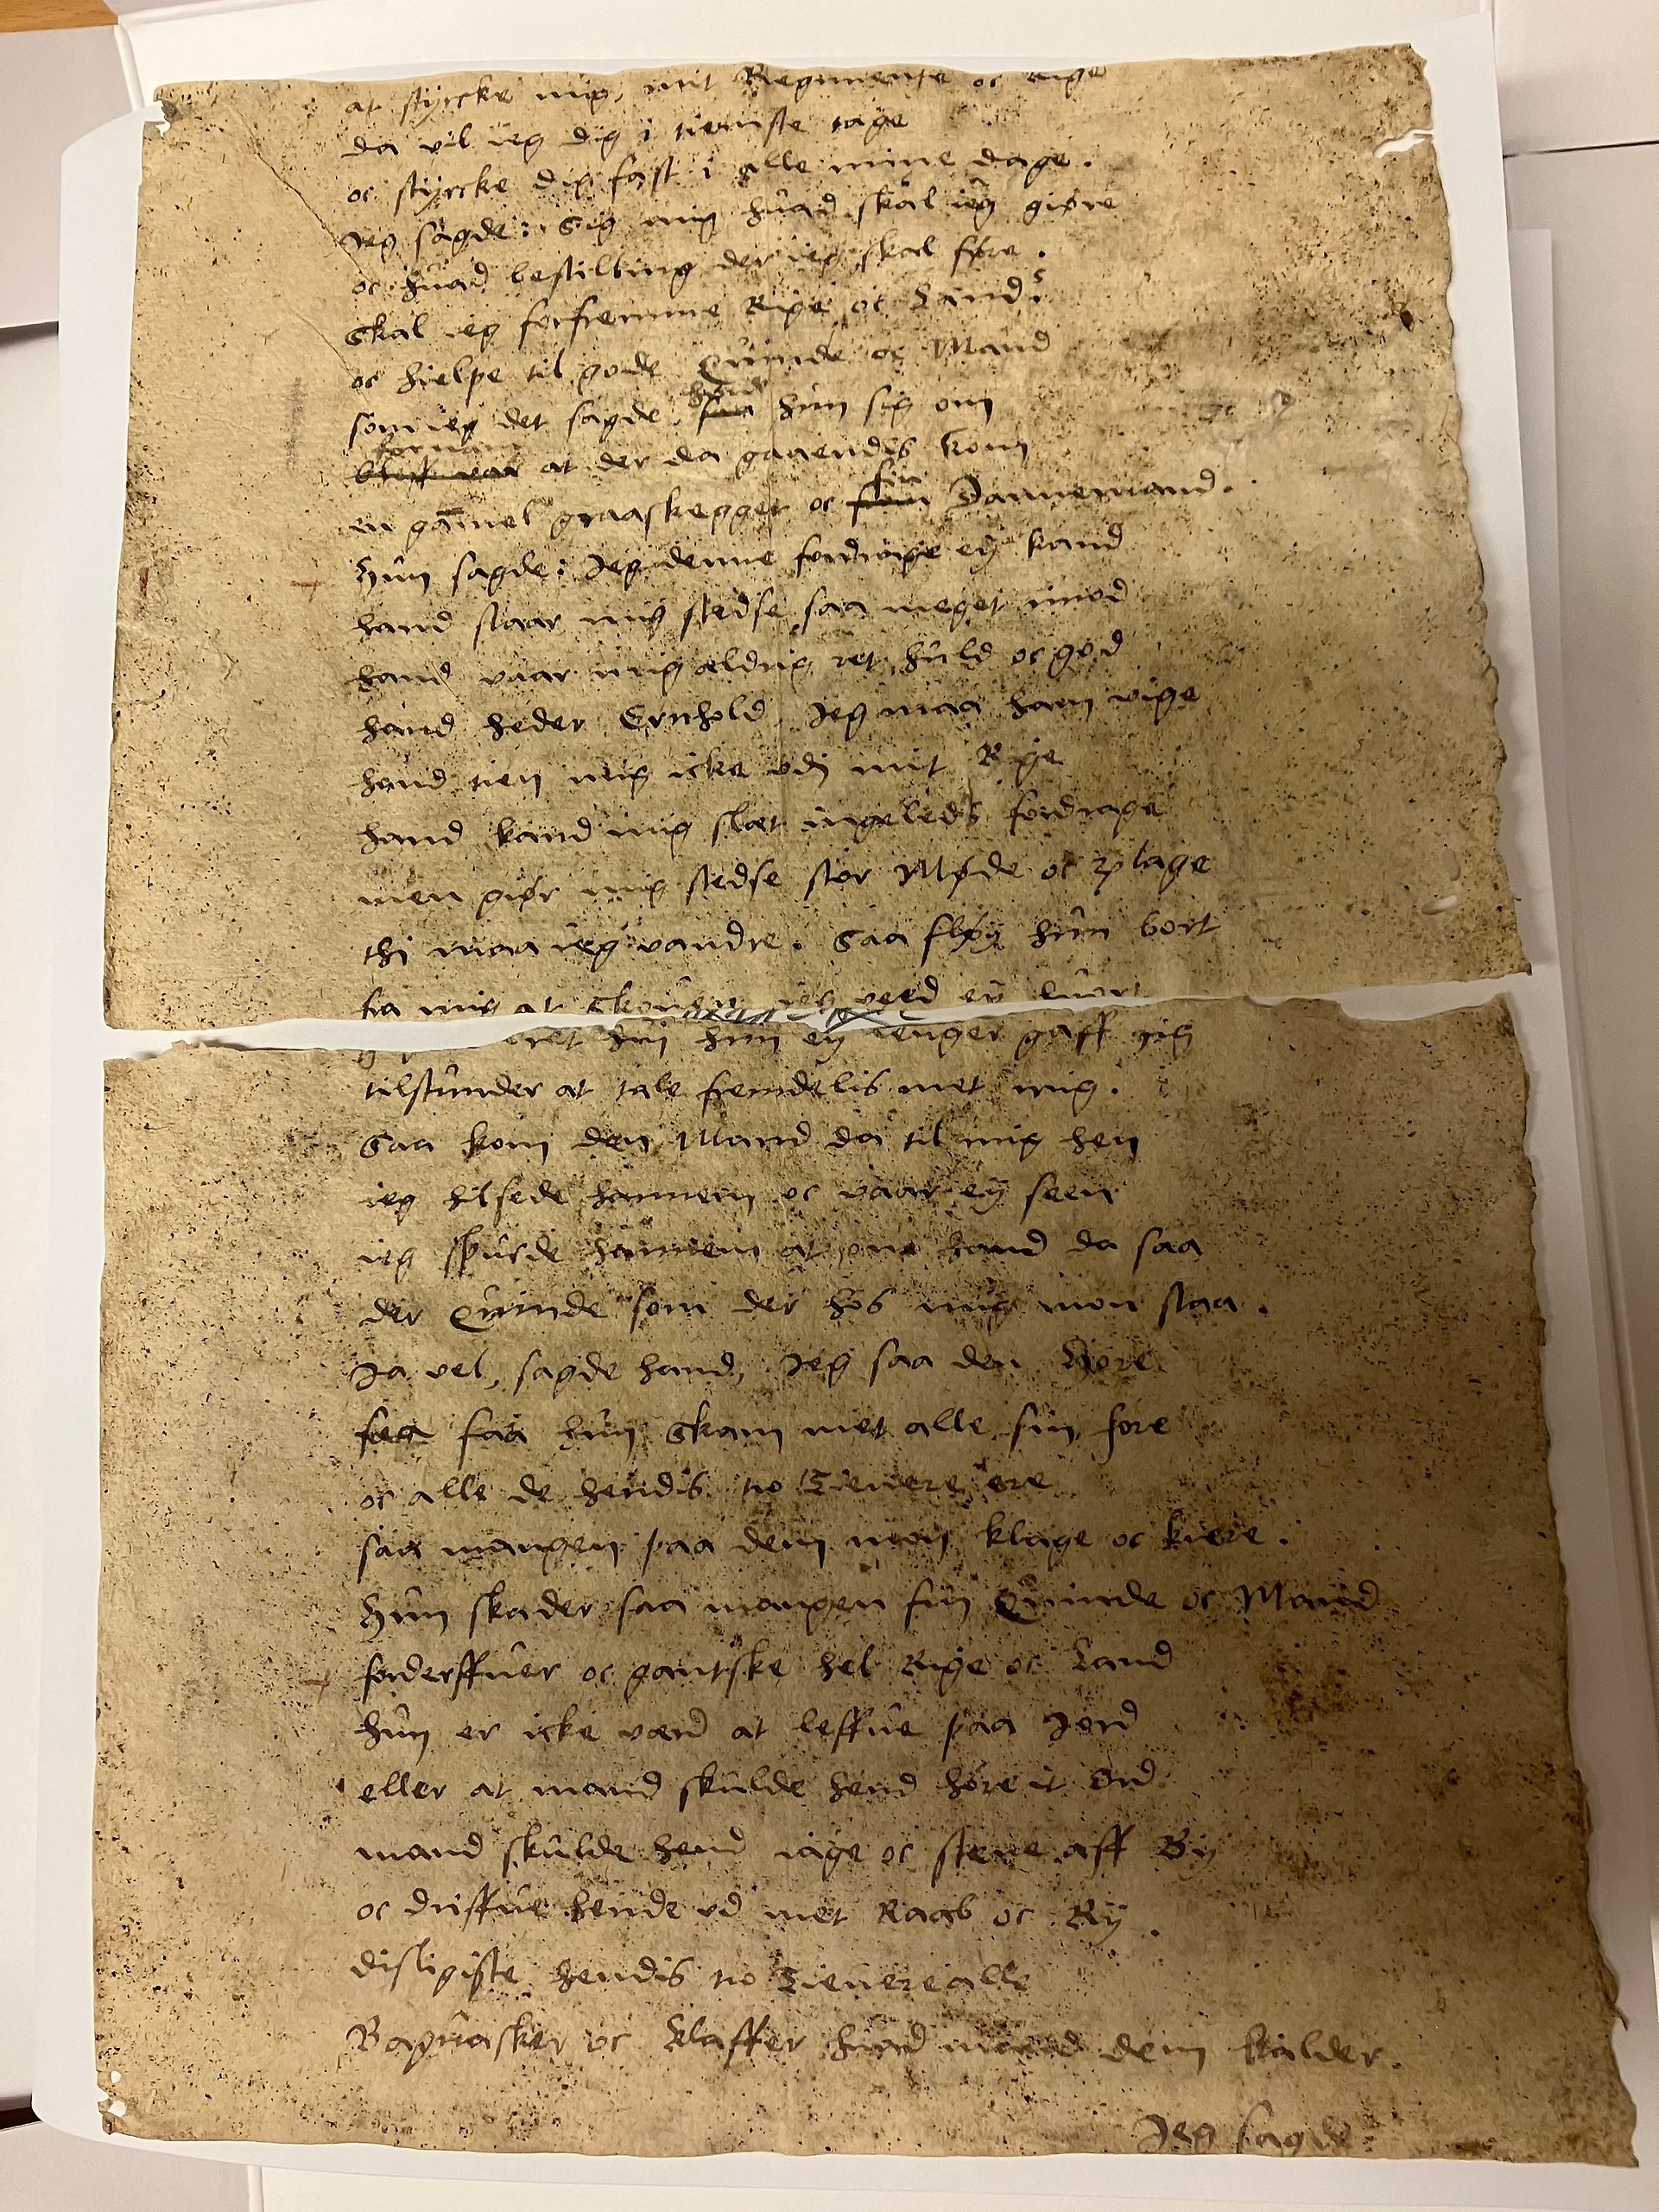 at styrcke mig, mit Regimente oc Rige
da vil ieg dig i tieniste tage
oc styrcke dig fast i alle mine dage.
Jeg sagde: Sig mig huad skal ieg giøre
oc huad bestilling der ieg skal føre.
Skal ieg forfremme Rige oc Land?
oc hielpe til gode Quinde oc Mand
som ieg det sagde, saa hun sig om
bleff vaar at der da gaaendis kom
en gammel graaskegget oc fin Dannemand.
Hun sagde: Jeg denne fordrage ey kand
hand staar mig stedse saa meget imod
hand vaar mig aldrig ret huld oc god
hand heder Ernhold, Jeg maa ham vige
hand tien mig icke vdj mit Rige
hand kand mig slæt ingeleds fordrage
men giør mig stedse stor Møde oc Plage
thi maa ieg vandre. Saa fløy hun bort
fra mig at Skouen, ieg veed ey huort
hun ey lenger gaff sig
tilstunder at tale fremdelis met mig.
Saa kom den Mand da til mig hen
ieg hilsede hannem oc vaar ey seen
ieg spurde hannem at, om hand da saa
der Quinde som der hos mig mon staa.
Ja vel, sagde hand, Jeg saa den Hore
faa hun Skam met alle sin fore
oc alle de hendis tro Tienere ere
saa mangen paa dem mon klage oc kiere.
Hun skader saa mangen fin Quinde oc Mand
forderffuer oc gantske hel Rige oc Land
hun er icke værd at leffue paa Jord
eller at mand skulde hend høre it Ord
mand skulde hend iage oc stene aff By
oc driffue hende vd met Raab oc Ry.
disligiste hendis tro Tienere alle
Bagvasker oc Klaffer huad mand dem kalder.
Jeg sagde: